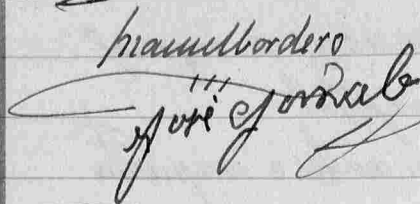 Manuel Cordero
José Gonzalez